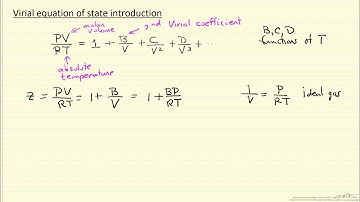 Virial equation of state introduction
molar volume
2nd Virial coefficient
PV/RT = 1 + B/V + C/V² + D/V³ + ...
B, C, D functions of T
absolute temperature
Z = PV/RT = 1 + B/V = 1 + BP/RT
1/V = P/RT ideal gas